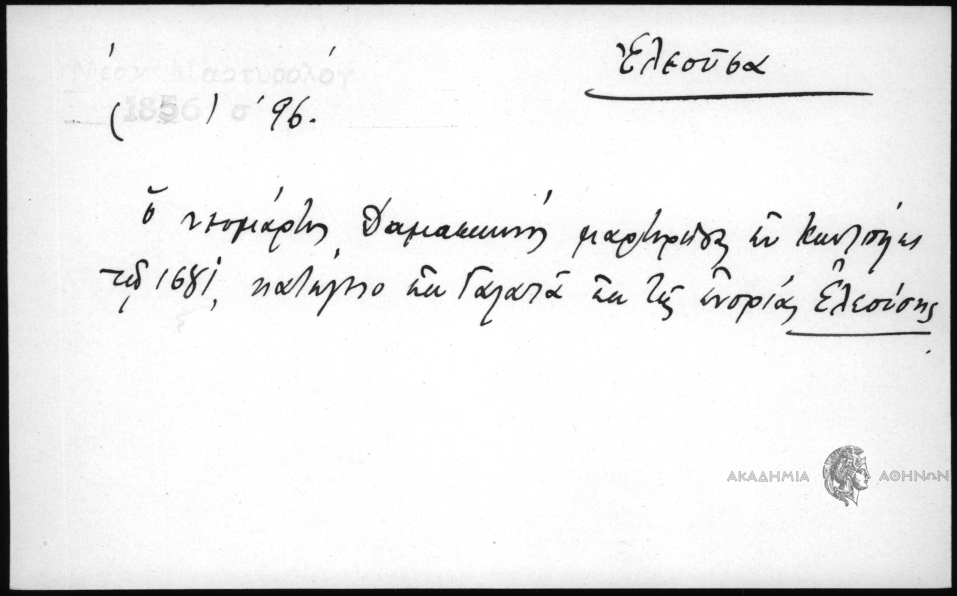 Ἐλεοῦσα
Νέον Μαρτυρολόγ
(1856) σ' 96.
ὁ νεομάρτυς Δαμασκηνός μαρτυρήσας ἐν Κων/πόλει
τῷ 1681, κατήγετο ἐκ Γαλατᾶ ἐκ τῆς ἐνορίας Ἐλεούσης
ΑΚΑΔΗΜΙΑ ΑΘΗΝΩΝ